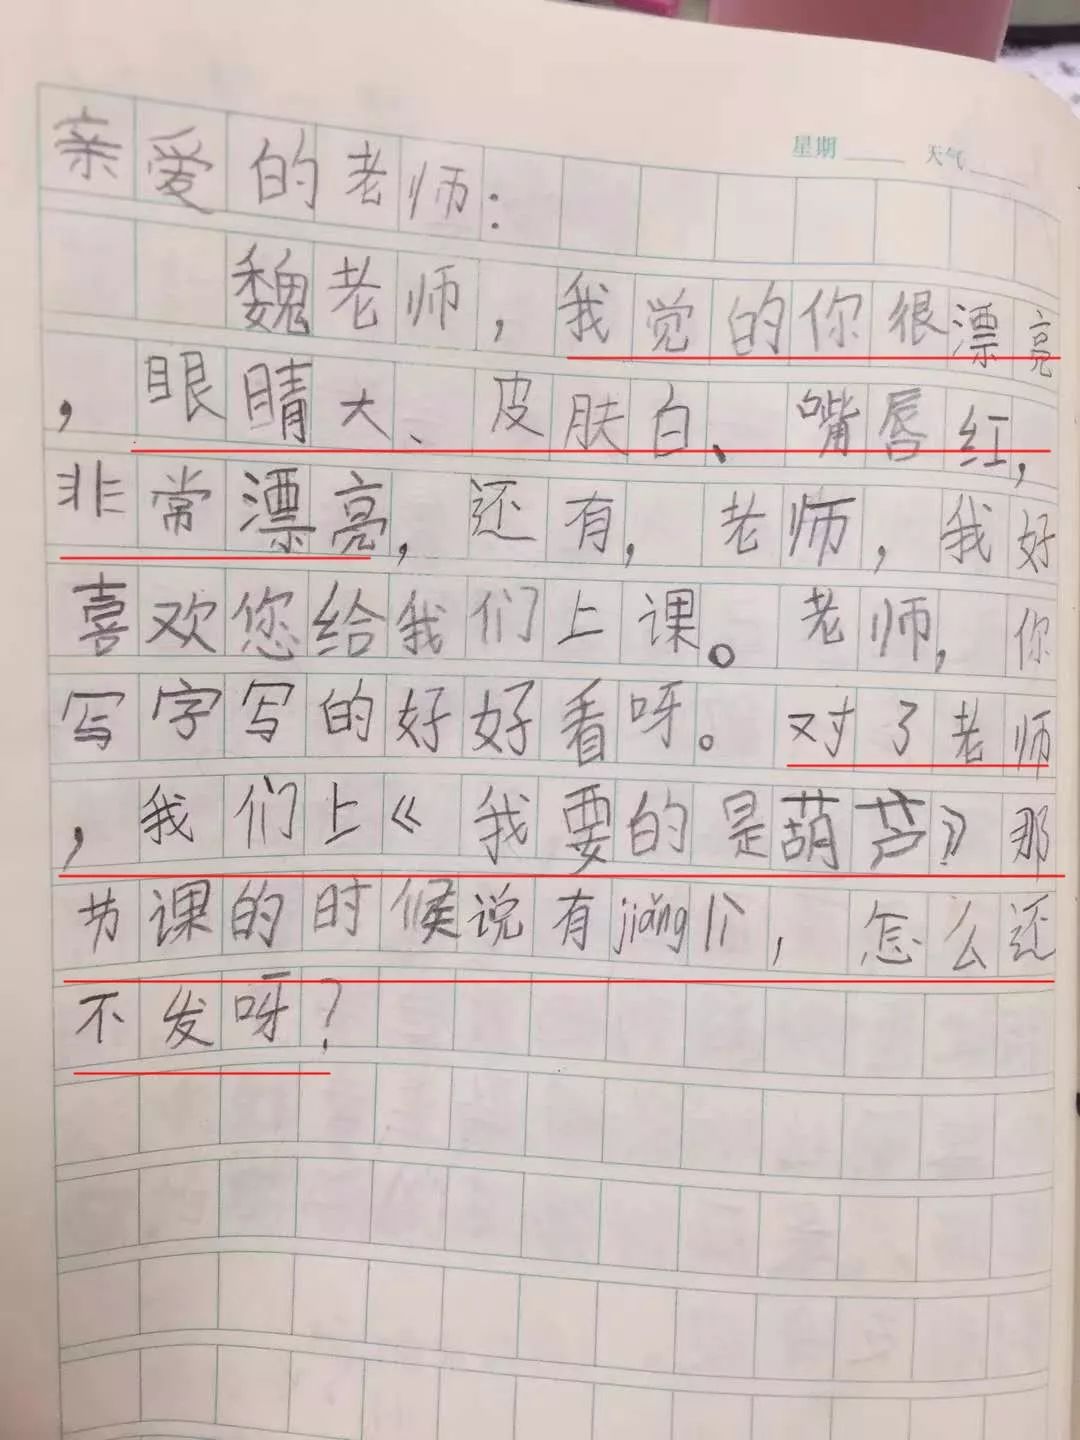 星期 天气
亲爱的老师：
魏老师，我觉的你很漂亮
，眼睛大、皮肤白、嘴唇红，
非常漂亮，还有，老师，我好
喜欢您给我们上课。老师，你
写字写的好好看呀。对了老师
，我们上《我要的是葫芦》那
节课的时候说有jiǎng个，怎么还
不发呀？